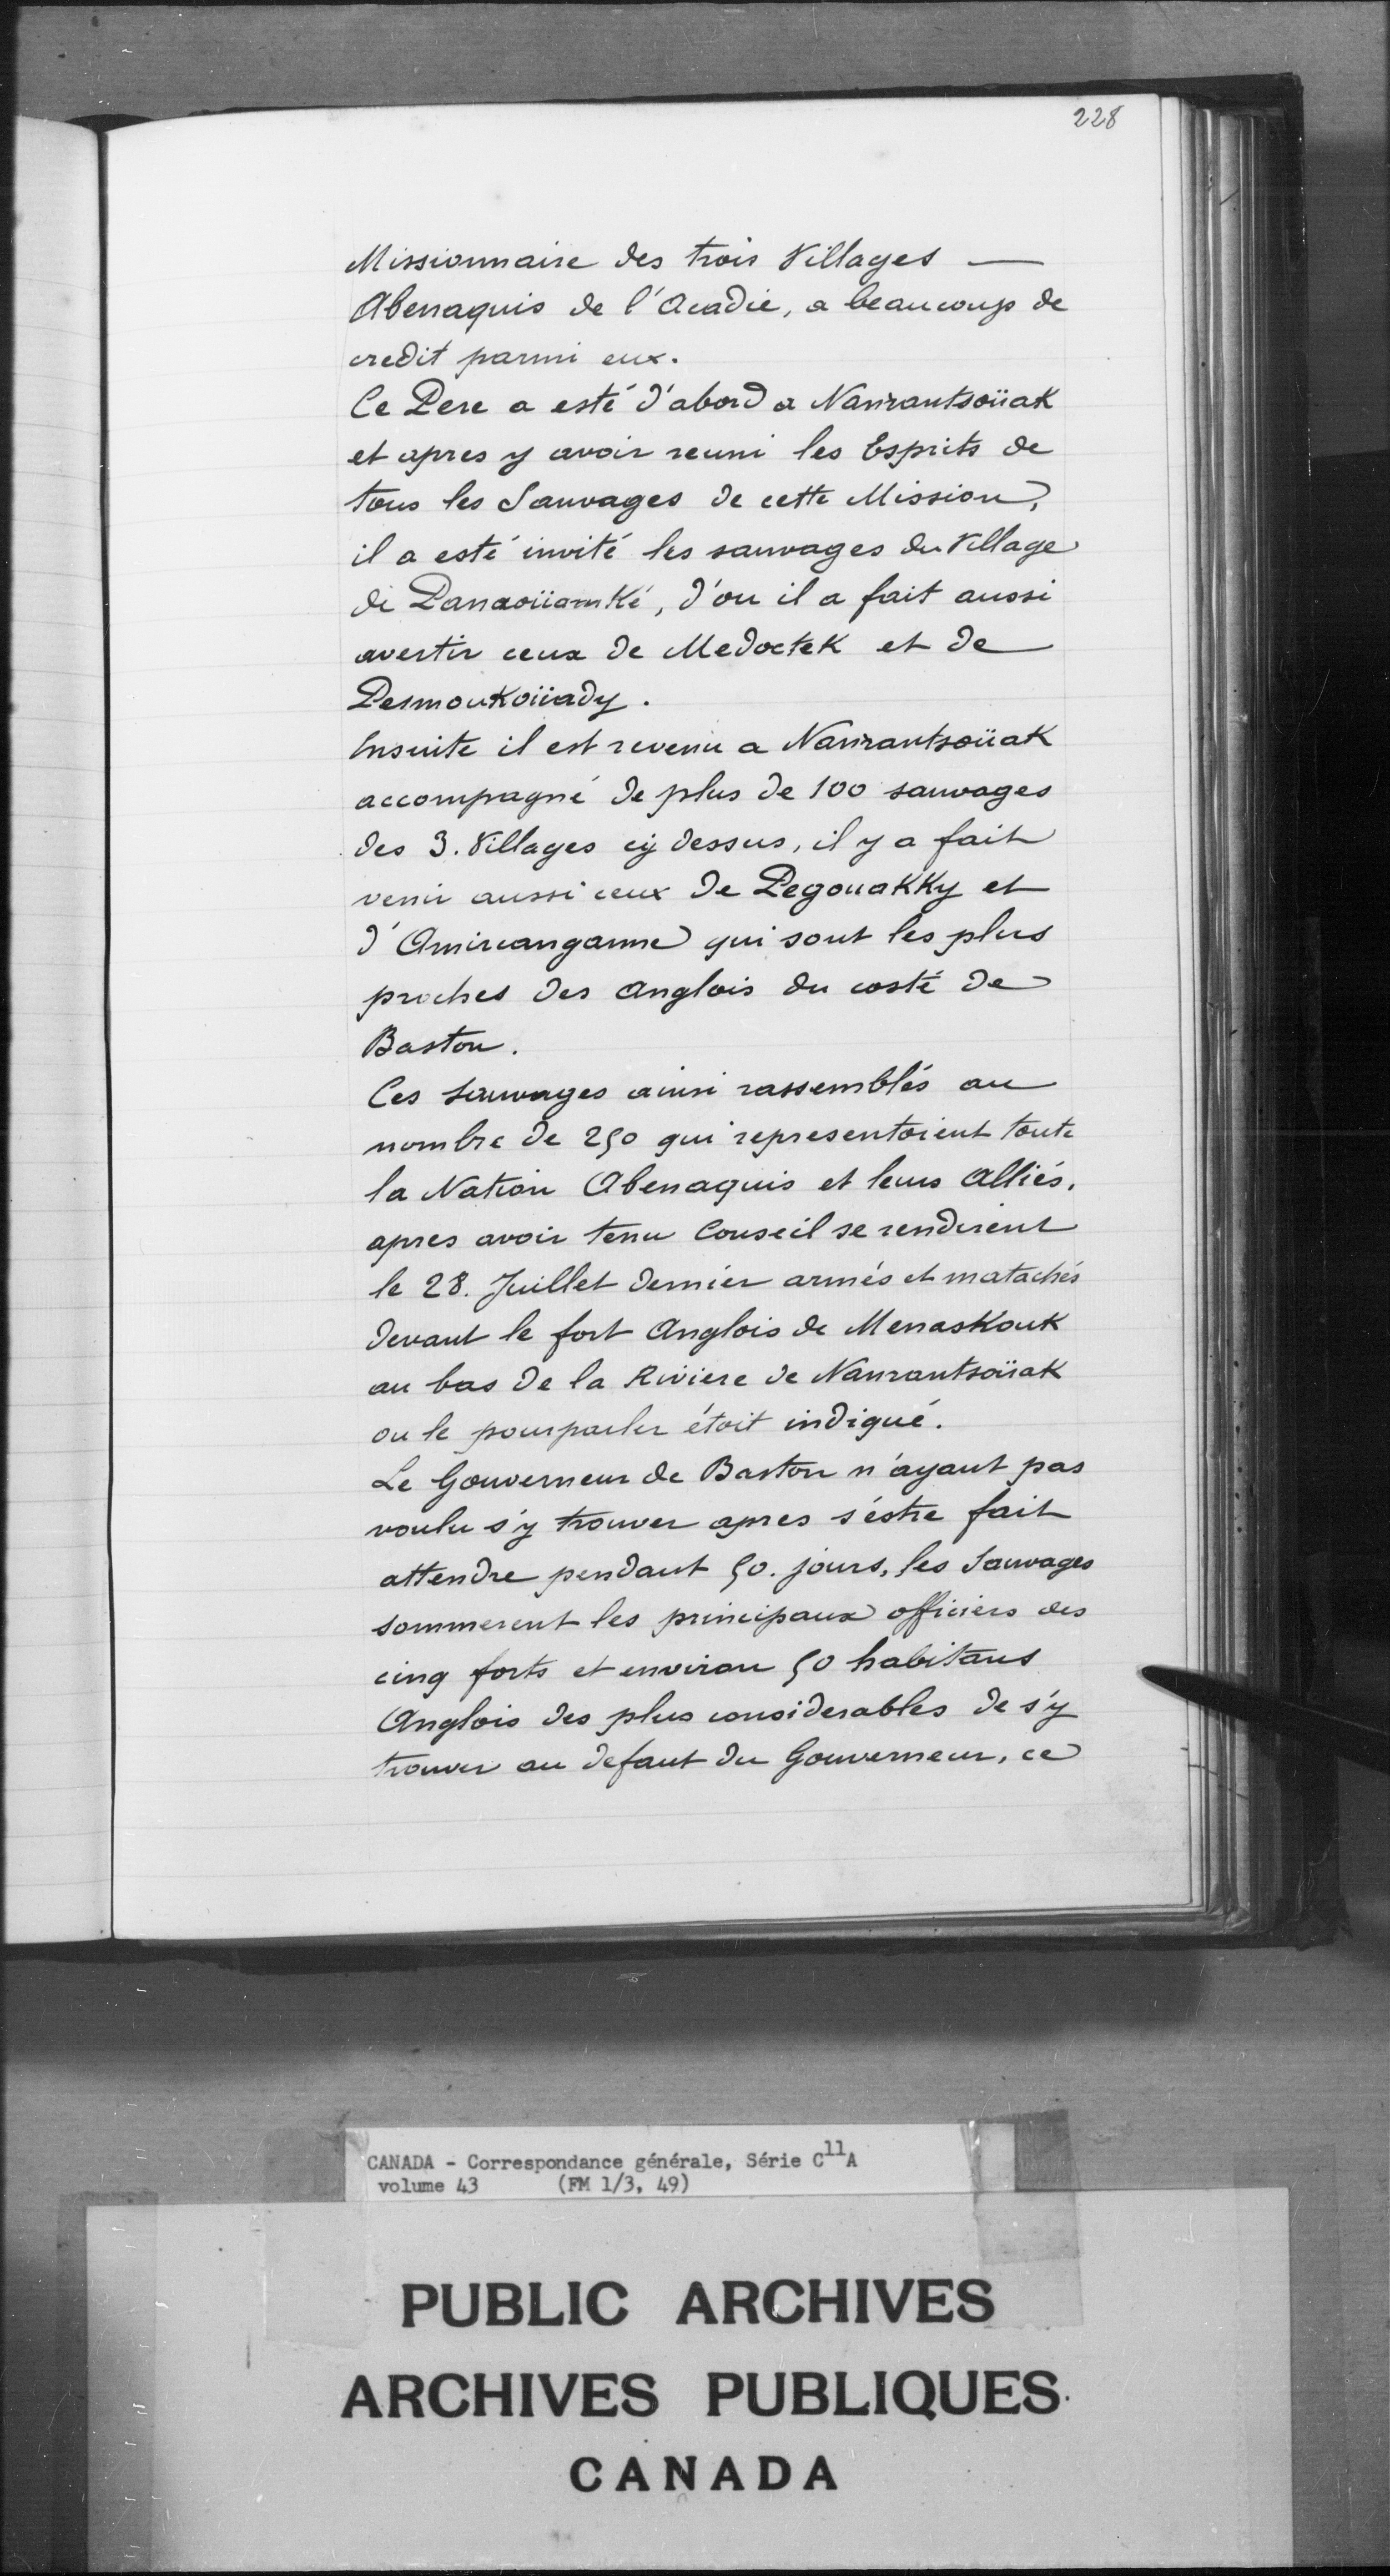 228
Missionnaire des trois Villages —
Abenaquis de l'Acadie, a beaucoup de
credit parmi eux.
Ce Pere a esté d'abord a Nanrantsoüak
et apres y avoir reuni les Esprits de
tous les Sauvages de cette Mission,
il a esté invité les sauvages du Village
de Panaoüamké, d'ou il a fait aussi
avertir ceux de Medoctek et de
Pesmoukoüady.
Ensuite il est revenu a Nanrantsoüak
accompagné de plus de 100 sauvages
des 3. Villages cy dessus, il y a fait
venir aussi ceux de Pegouakky et
d'Amircanganne qui sont les plus
proches des anglois du costé de
Baston.
Ces sauvages ainsi rassemblés au
nombre de 250 qui representoient toute
la Nation Abenaquis et leurs Alliés,
apres avoir tenu Conseil se rendirent
le 28. Juillet dernier armés et matachés
devant le fort Anglois de Menaskouk
au bas de la Riviere de Nanrantsoüak
ou le pourparler étoit indiqué.
Le Gouverneur de Baston n'ayant pas
voulu s'y trouver apres s'éstre fait
attendre pendant 50. jours, les Sauvages
sommerent les principaux officiers des
cinq forts et environ 50 habitans
Anglois des plus considerables de s'y
trouver au defaut du Gouverneur, ce
CANADA - Correspondance générale, Série C11A
volume 43 (FM 1/3, 49)
PUBLIC ARCHIVES
ARCHIVES PUBLIQUES
CANADA